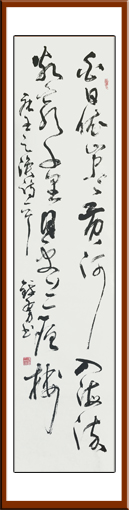 白日依山尽黄河入海流
欲穷千里目更上一层楼
唐王之涣诗一首